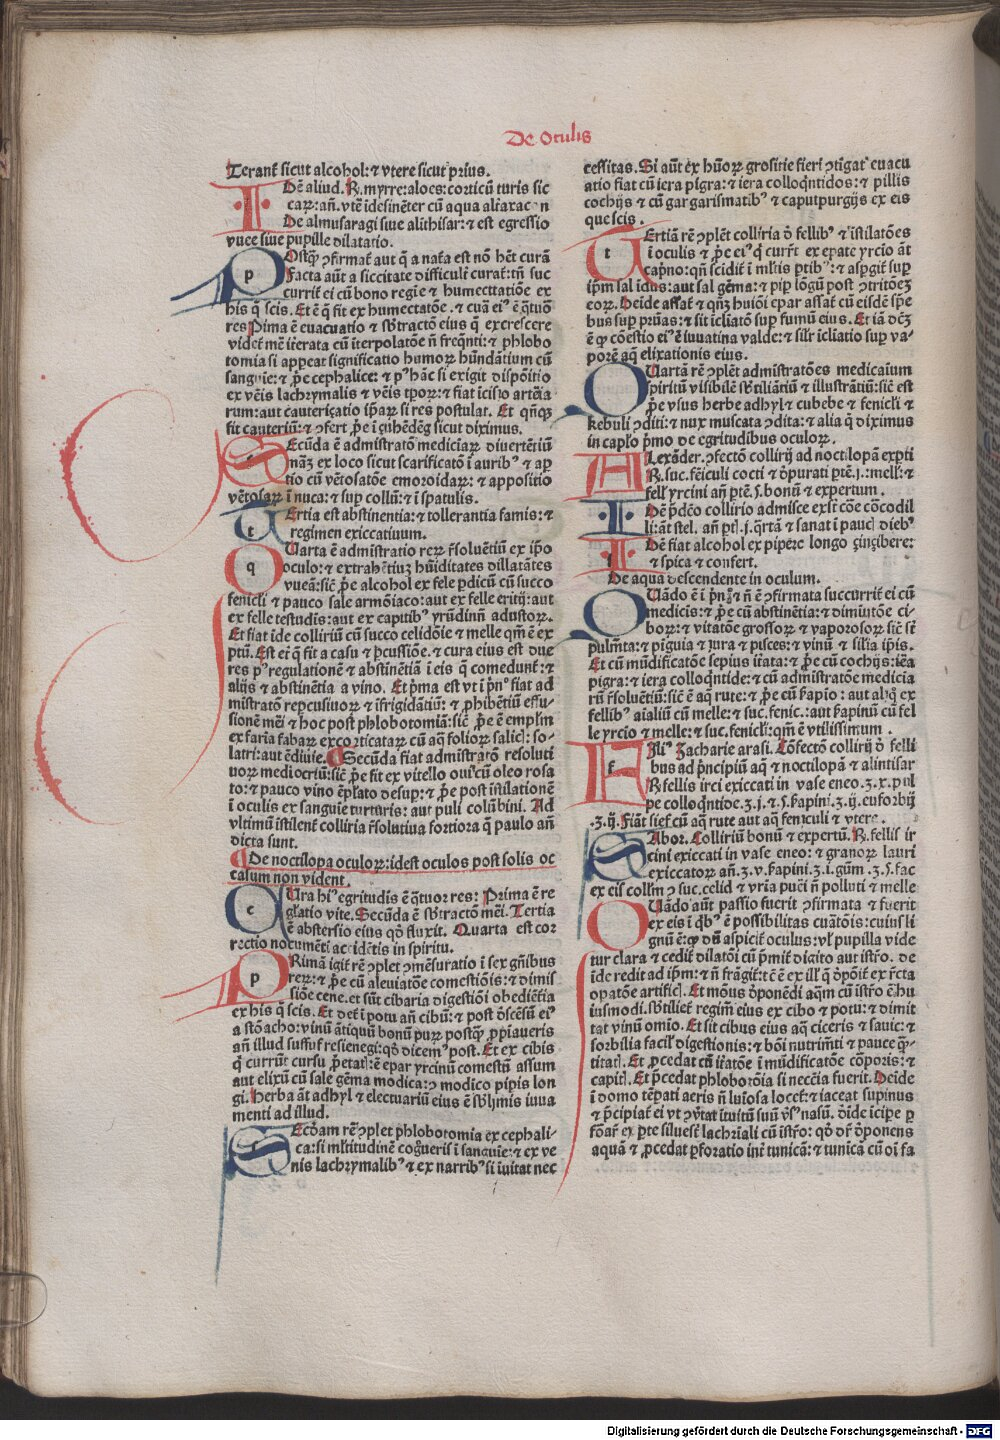 De oculis
Terant᷑ sicut alcohol: ⁊ vtere sicut prius.
IDē aliud. ℞. myrre: aloes: corticū turis sic
caꝝ: añ. vtē idesinēter cū aqua alfaxacon
De almusaragi siue alithisar: ⁊ est egressio
vuce siue pupille dilatatio.
POstꝙ ↄfirmat᷑ aut q̄ a nata est nō hēt curā
Facta aūt a siccitate difficulr̄ curat᷑: tñ suc
currit᷑ ei cū bono regīe ⁊ humecttatiōe ex
his q̄ scis. Et ē q̄ fit ex humectatōe. ⁊ cura eiꝰ ē q̄tuor
res Pima ē euacuatio ⁊ sb̄tractō eius q̄ excrescere
videt᷑ mēi iterata cū iterpolatōe ñ freq̄nti: ⁊ phlobo
tomia si appeat significatio humoꝝ hūndātium cū
sanguīe: ⁊ p̄e cephalice: ⁊ pꝰ hāc si exigit dispōitio
ex vēis lachrymalis ⁊ vēis tꝑoꝝ: ⁊ fiat īcisio arteria
rum: aut cauteriçatio ip̄aꝝ si res postulat. Et qn̄qꝫ
fit cauteriū: ⁊ ↄfert p̄e sicut diximus.
SEcūda ē admistratō mediciaꝝ diuertētiū
māꝫ ex loco sicut scarificatō ī auribꝰ ⁊ ap
tio cū vētosatōe emoroidaꝝ: ⁊ appositio
vētosaꝝ ī nuca: ⁊ sup collū: ⁊ ī spatulis.
TErtia est abstinentia: ⁊ tollerantia famis: ⁊
regimen exiccatiuum.
QUarta ē admistratio reꝝ r̄soluētiū ex ip̄o
oculo: ⁊ extrahētiuꝫ hūiditates dillatātes
vueā: sic̄ p̄e alcohol ex fele ꝑdicū cū succo
feniculi ⁊ pauco sale armōiaco: aut ex felle eritij: aut
ex felle testudīs: aut ex capitibꝰ yrūdinū adustoꝝ.
Et fiat īde colliriū cū succo celidōie ⁊ melle qm̄ ē ex
ptū. Est et᷑ q̄ fit a casu ⁊ ꝑcussiōe. ⁊ cura eius est due
res pꝰ regulationē ⁊ abstinētiā ī eis q̄ comedunt᷑: ⁊
alijs ⁊ abstinētia a vino. Et p̄ma est vt ī p̄nº fiat ad
mistratō reꝑcusiuoꝝ ⁊ īfrigidātiū: ⁊ ꝓhibētiū effu-
sionē mēi ⁊ hoc post phlobotomiā: sic̄ p̄e ē emplm̄
ex farīa fabaꝝ excorticataꝝ cū aq̄ folioꝝ salicꝭ: so-
latri: aut ēdiuie. Secūda fiat admistratō resoluti
uoꝝ mediocriū: sic̄ p̄e fit ex vitello oui cū oleo rosa
to: ⁊ pauco vino ēplato desuꝑ: ⁊ p̄e post istilationē
ī oculis ex sanguīe turturis: aut puli colūbini. Ad
vltimū istilent᷑ colliria r̄solutiua fortiora q̄ paulo añ
dicta sunt.
De noctilopa oculoꝝ: idest oculos post solis oc
casum non vident.
CUra hiꝰ egritudīs ē q̄tuor res: Prima ē re
gl̄atio vite. Secūda ē sb̄tractō mēi. Tertia
ē abstersio eius qd̄ fluxit. Quarta est cor
rectio nocumēti accidētis in spiritu.
PRimā igit᷑ rē ↄplet ↄmēsuratio ī sex gñibus
reꝝ: ⁊ p̄e cū aleuiatōe comestiōis: ⁊ dimis
siōe cene. et sūt cibaria digestiōi obediētia
ex his q̄ scis. Et det᷑ ī potu añ cibū: ⁊ post d̄scēsū eiꝰ
a stōacho: vinū ātiquū bonū puꝝ postꝙ ꝓpiaueris
añ illud suffuf resienegi: qd̄ dicemꝰ post. Et ex cibis
q̄ currūt cursu ꝓ̄etatꝭ: ē epar yrcinū comestū assum
aut elixū cū sale gēma modica: ↄ modico piꝑis lon
gi. Herba āt adhyl ⁊ electuariū eius ē sb̄limis iuua
menti ad illud.
SEcd̄am rē ↄplet phlobotomia ex cephali-
ca: si mltitudinē cog̃ueris ī sanguīe: ⁊ ex ve
nis lachrymalibꝰ ⁊ ex narribꝰ si iuitat nec
cessitas. Si aūt ex hūoꝝ grositie fieri ↄtīgat᷑ euacu
atio fiat cū iera pigra: ⁊ iera colloq̄ntidos: ⁊ pillis
cochijs ⁊ cū gargarismatibꝰ ⁊ caputpurgijs ex eis
que scis.
TErtiā rē ↄplēt colliria d̄ fellibꝰ ⁊ istilatōes
ī oculis ⁊ p̄e eiꝰ q̄ currit᷑ ex epate yrcio āt
cap̄no: qn̄ scidit᷑ ī mltis ꝑtibꝰ: ⁊ asꝑgit᷑ suꝑ
ip̄m sal idus: aut sal gēma: ⁊ piꝑ lōgū post ↄtritōeꝫ
eoꝝ. Deide assat᷑ ⁊ qn̄ꝫ huiōi epar assat᷑ cū eisdē spē
bus suꝑ prūas: ⁊ sit icliatō suꝑ fumū eius. Et iā dcꝫ
ē ꝙ cōestio eiꝰ ē iuuatina valde: ⁊ silr̄ icliatio suꝑ va-
porē aq̄ elixationis eius.
QUartā rē ↄplēt admistratōes medicaium
spiritū visibilē sb̄tiliātiū ⁊ illustrātiū: sic̄ est
p̄e vsus herbe adhyl ⁊ cubebe ⁊ feniculi ⁊
kebuli ↄditi: ⁊ nux muscata ↄdita: ⁊ alia q̄ diximus
in caplo p̄mo de egritudibus oculoꝝ.
ALexāder. ↄfectō collirij ad noctilopā exꝑti
℞. suc. fēiculi cocti ⁊ d̄purati ꝑtē. j. mellꝭ: ⁊
fellꝭ yrcini añ ꝑtē. s. bonū ⁊ expertum.
IDē p̄dc̄o collirio admisce exst᷑ cōe cōcodil
li: āt stel. añ ꝑtꝭ. j. q̄rtā ⁊ sanat ī paucꝭ diebꝰ
IDē fiat alcohol ex pipere longo zinzibere:
⁊ spica ⁊ confert.
De aqua descendente in oculum.
QUādo ē ī p̄nº ⁊ ñ ē ↄfirmata succurrit᷑ ei cū
medicis: ⁊ p̄e cū abstinētia: ⁊ diminutōe ci-
boꝝ: ⁊ vitatōe grossoꝝ ⁊ vaporosoꝝ sic̄ st̄
pulmta: ⁊ pīguia ⁊ iura ⁊ pisces: ⁊ vinū ⁊ silia ip̄is.
Et cū mūdificatōe sepius itata: ⁊ p̄e cū cochijs: iēa
pigra: ⁊ iera colloq̄ntide: ⁊ cū admistratōe medicia
rū r̄soluētiū: sic̄ ē aq̄ rute: ⁊ p̄e cū ẞapio: aut alꝗ ex
fellibꝰ aialiū cū melle: ⁊ suc. fenic.: aut ẞapinū cū fel
le yrcio ⁊ melle: ⁊ suc. feniculi: qm̄ ē vtilissimum.
FIliꝰ Zacharie arasi. Cōfectō collirij d̄ felli
bus ad p̄ncipiū aq̄ ⁊ noctilopā ⁊ alintisar
℞ fellis irci exiccati in vase eneo. ʒ. x. pul
pe colloq̄ntide. ʒ. j. ⁊ s. ẞapini. ʒ. ij. euforbij
.ʒ. ij. Fiāt sief cū aq̄ rute aut aq̄ feniculi ⁊ vtere.
SAbor. Colliriū bonū ⁊ expertū. ℞. fellis ir
cini exiccati in vase eneo: ⁊ granoꝝ lauri
exiccatoꝝ añ. ʒ. v. ẞapini. ʒ. i. gūm. ʒ. s. fac
ex eis collm̄ ↄ suc. celid ⁊ vrīa pue̅i ñ polluti ⁊ melle
QUādo aūt passio fuerit ↄfirmata ⁊ fuerit
ex eis ī qbꝰ ē possibilitas curatōis: cuius li
gnū ē: ꝙ dū aspicit oculus: vl̄ pupilla vide
tur clara ⁊ cedit᷑ dilatōi cū p̄mit᷑ digito aut istr̄o. de
ide redit ad ip̄m: ⁊ ñ frāgit᷑: tc̄ ē ex illꝭ q̄ d̄pōit ex r̄cta
opatōe artificꝭ. Et mōus d̄ponēdi aq̄m cū istr̄o ē hu
iusmodi. sb̄tiliet᷑ regimē eius ex cibo ⁊ potu: ⁊ dimit
tat vinū omīo. Et sit cibus eius aq̄ ciceris ⁊ sauic: ⁊
sorbilia facil digestionis: ⁊ bōi nutrimti ⁊ pauce q̄̄-
titatꝭ. Et ꝓcedat cū itatōe ī mūdificatōe cōꝑoris: ⁊
capitꝭ. Et p̄cedat phlobotōia si necc̄ia fuerit. Deide
ī domo tēpati aeris ñ luiosa locet᷑: ⁊ iaceat supinus
⁊ p̄cipiat᷑ ei vt ↄv̄tat ituitū suū v̄sꝰ nasū. d̄ide icipe ꝑ
fōar̄ ex ꝑte siluest᷑ lachrialī cū istr̄o: qd̄ dr̄ d̄ponens
aquā ⁊ ꝓcedat ꝑforatio int᷑ tunicā: ⁊ tunicā cū oi fa
Digitalisierung gefördert durch die Deutsche Forschungsgemeinschaft - DFG